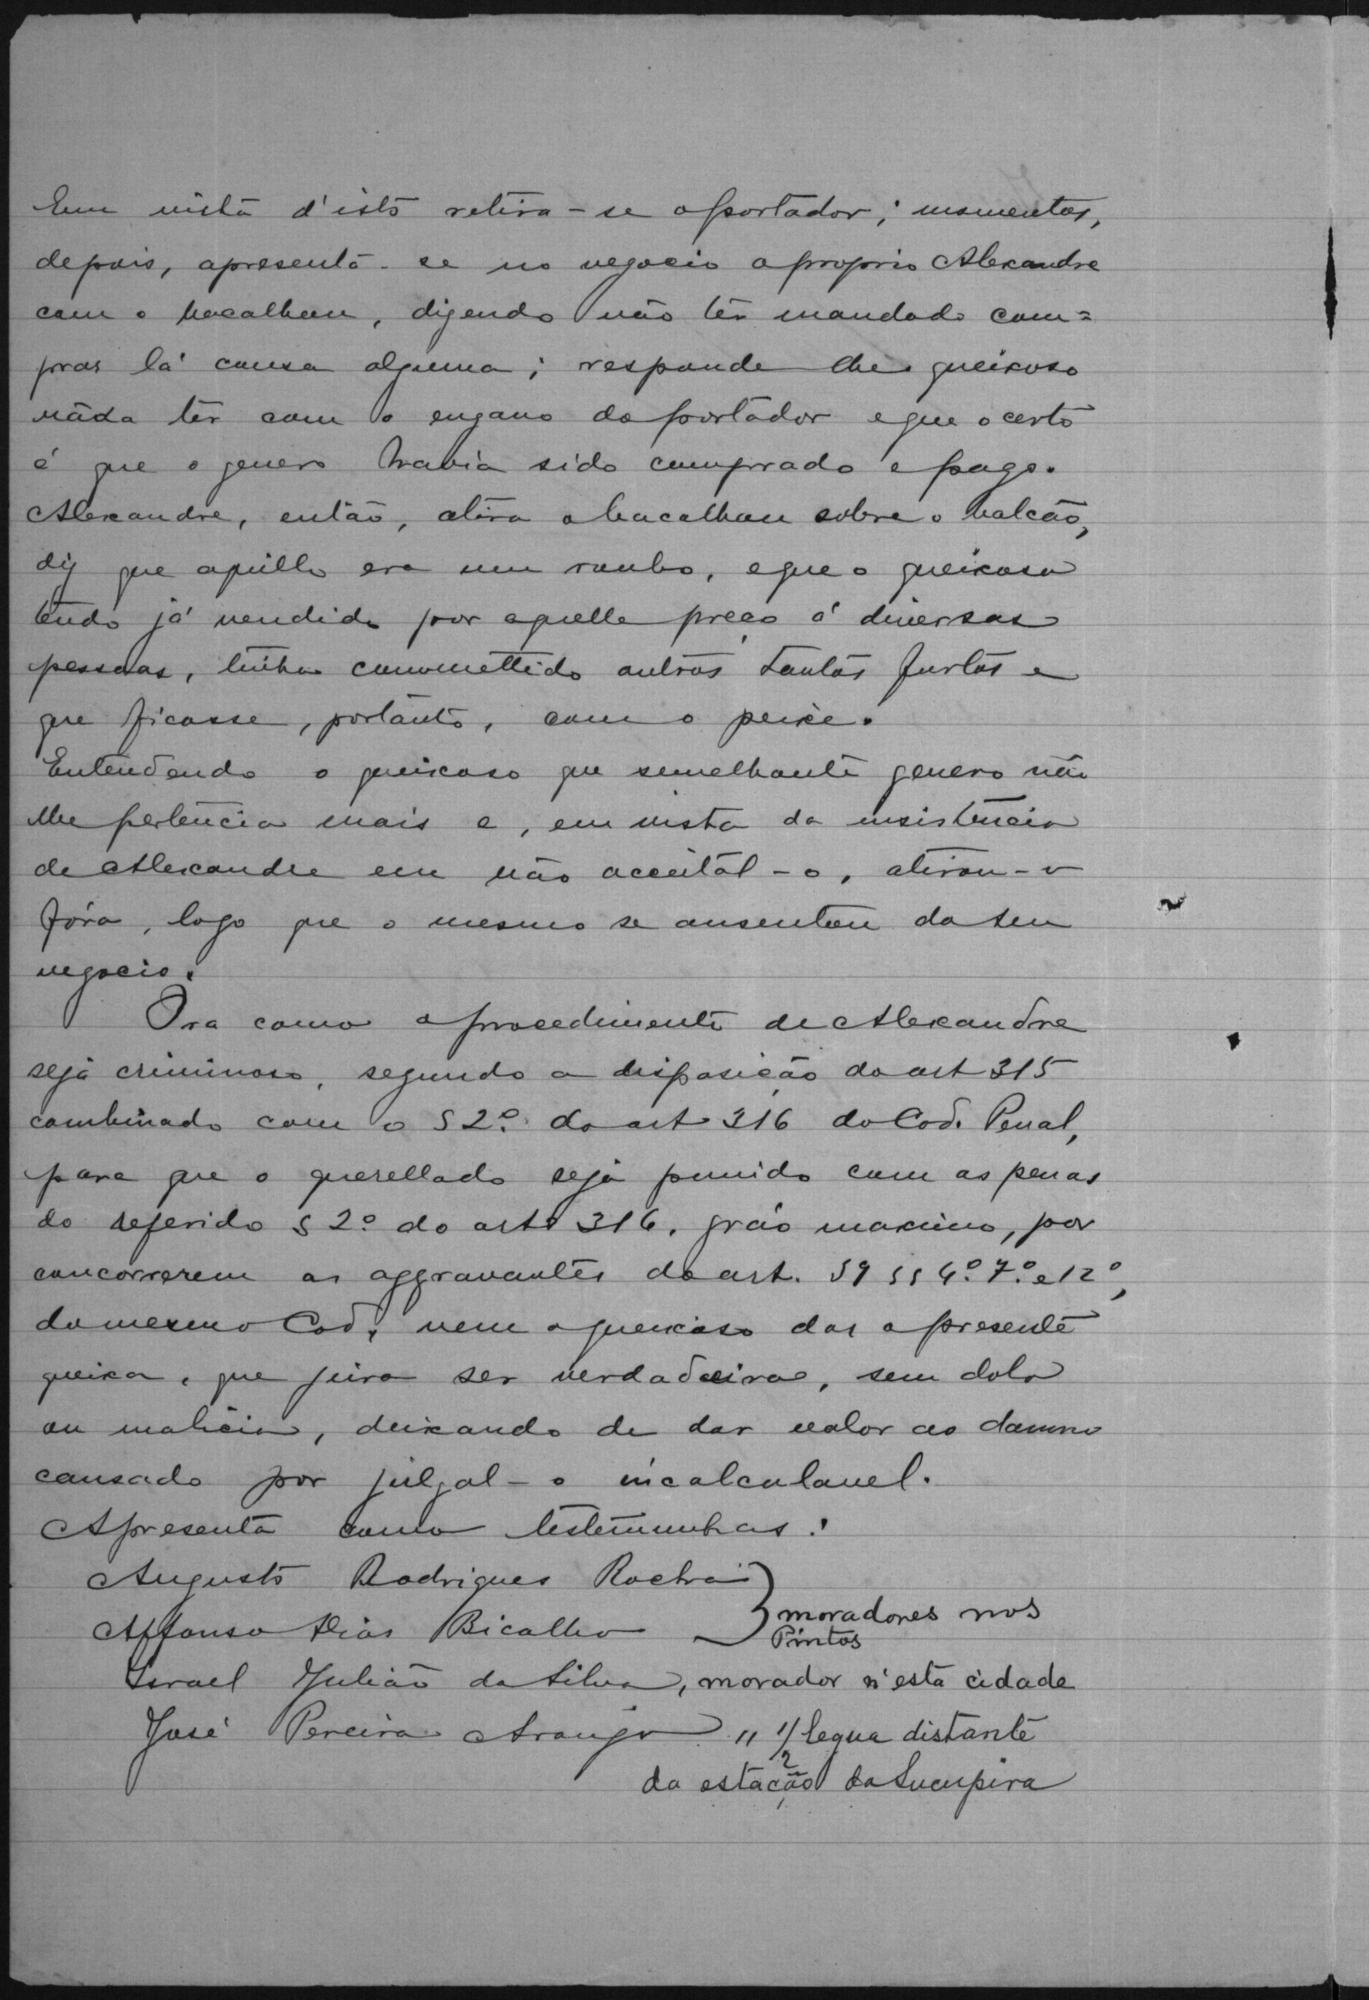 Em vista d'isto retira-se o portador; momentos,
depois, apresenta-se no negocio o proprio Alexandre
com o bacalhau, dizendo não ter mandado com=
prar lá cousa alguma; responde lhe o queixoso
náda ter com o engano do portador e que o certo
é que o genero havia sido comprado e pago.
Alexandre, então, atira o bacalhau sobre o balcão,
diz que aquillo era um roubo, e que o queixoso
tendo já vendido por aquelle preço á diversas
pessoas, tinha commettido outros tantos furtos e
que ficasse, portanto, com o peixe.
Entendendo o queixoso que semelhante genero não
lhe pertencia mais e, em vista da insistencia
de Alexandre em não acceital-o, atirou-o
fóra, logo que o mesmo se ausentou do seu
negocio.
Ora como o procedimento de Alexandre
seja criminoso, segundo a disposição do art 315
combinado com o § 2º. do art 316 do Cod. Penal,
para que o querellado seja punido com as penas
do referido § 2º do art. 316, gráo maximo, por
concorrerem as aggravantes do art. 39 §§ 4º. 7º. e 12º,
do mesmo Cod., vem o queixoso dar a presente
queixa, que jura ser verdadeira, sem dolo
ou malicia, deixando de dar valor ao damno
causado por julgal-o incalculavel.
Apresenta como testemunhas:
Augusto Rodrigues Rocha
Affonso Dias Bicalho } moradores nos
Pintos
Israel Julião da Silva, morador n'esta cidade
José Pereira Araujo " 1/2 legua distante
da estação do Sucupira